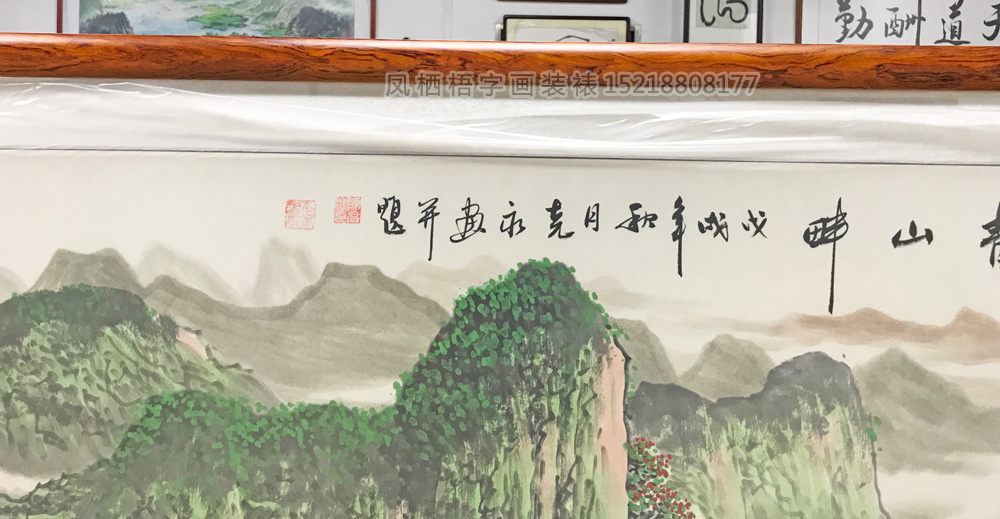 天道酬勤
凤栖梧字画装裱 15218808177
山畔 戊戌年秋月尧永画并题